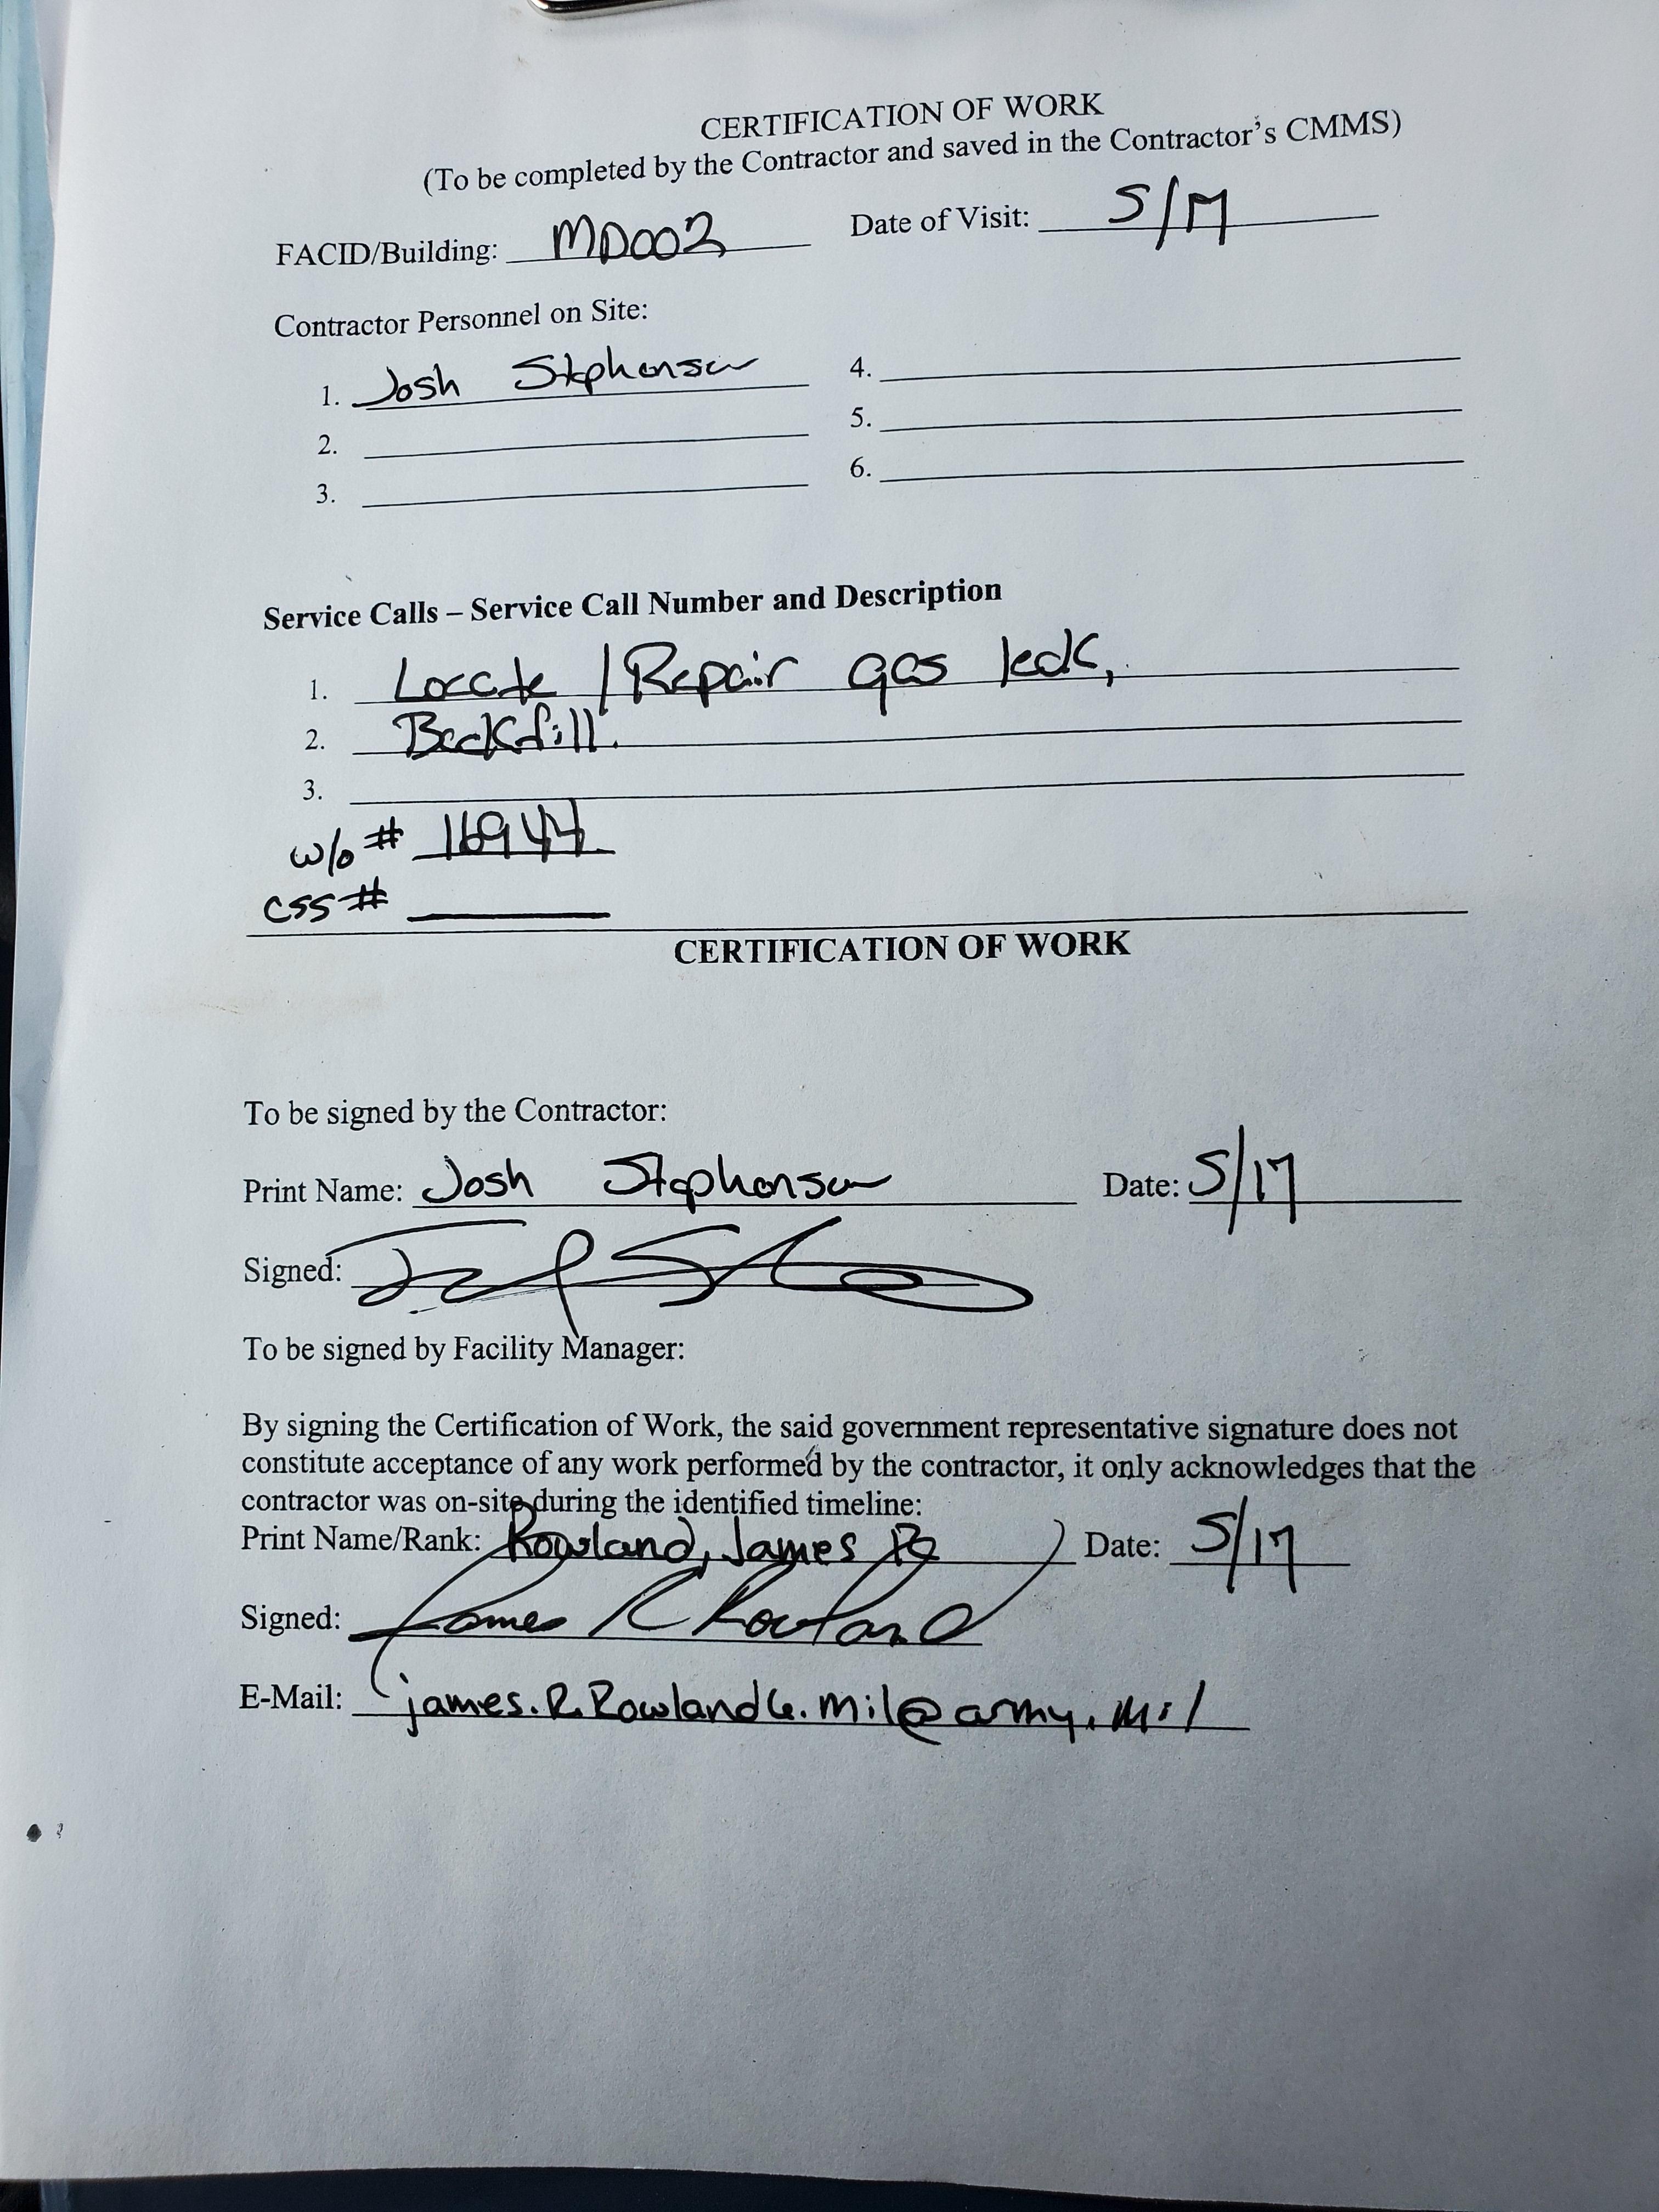 CERTIFICATION OF WORK
(To be completed by the Contractor and saved in the Contractor's CMMS)
FACID/Building: MD002 Date of Visit: 5/17
Contractor Personnel on Site:
1. Josh Stephenson 4.
2. 5.
3. 6.
Service Calls – Service Call Number and Description
1. Locate / Repair gas leak,
2. Backfill.
3.
w/o # 16944
CSS #
CERTIFICATION OF WORK
To be signed by the Contractor:
Print Name: Josh Stephenson Date: 5/17
Signed:
To be signed by Facility Manager:
By signing the Certification of Work, the said government representative signature does not
constitute acceptance of any work performed by the contractor, it only acknowledges that the
contractor was on-site during the identified timeline:
Print Name/Rank: Rowland, James R Date: 5/17
Signed: James R Rowland
E-Mail: james.R.Rowland6.mil@army.mil